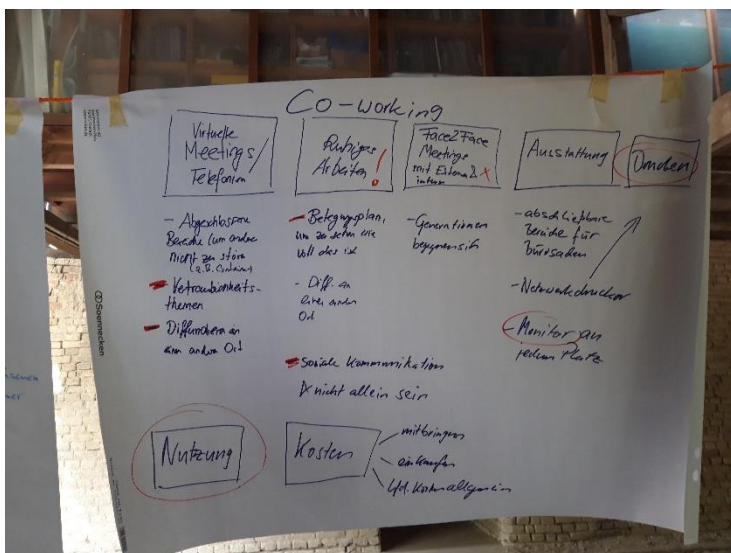 Co-working
Virtuelle
Meetings/
Telefonieren
Ruhiges
Arbeiten!
Face2Face
Meetings
mit Externen &
intern
Ausstattung
Drucken
- Abgeschlossene
Bereiche (um andere
nicht zu stören
(z.B. Container)
- Vertraulichkeits-
themen
- an
einen anderen Ort
- Belegungsplan,
um zu sehen wie
voll das ist
- Diff. an
einen anderen
Ort
- Soziale Kommunikation
nicht allein sein
- Generationen
begegnen sich
- abschließbare
Bereiche für
Bürosachen
- Netzwerkdrucker
- Monitor an
jedem Platz
Nutzung
Kosten
mitbringen
einkaufen
lfd. Kosten allgemein
Soennecken